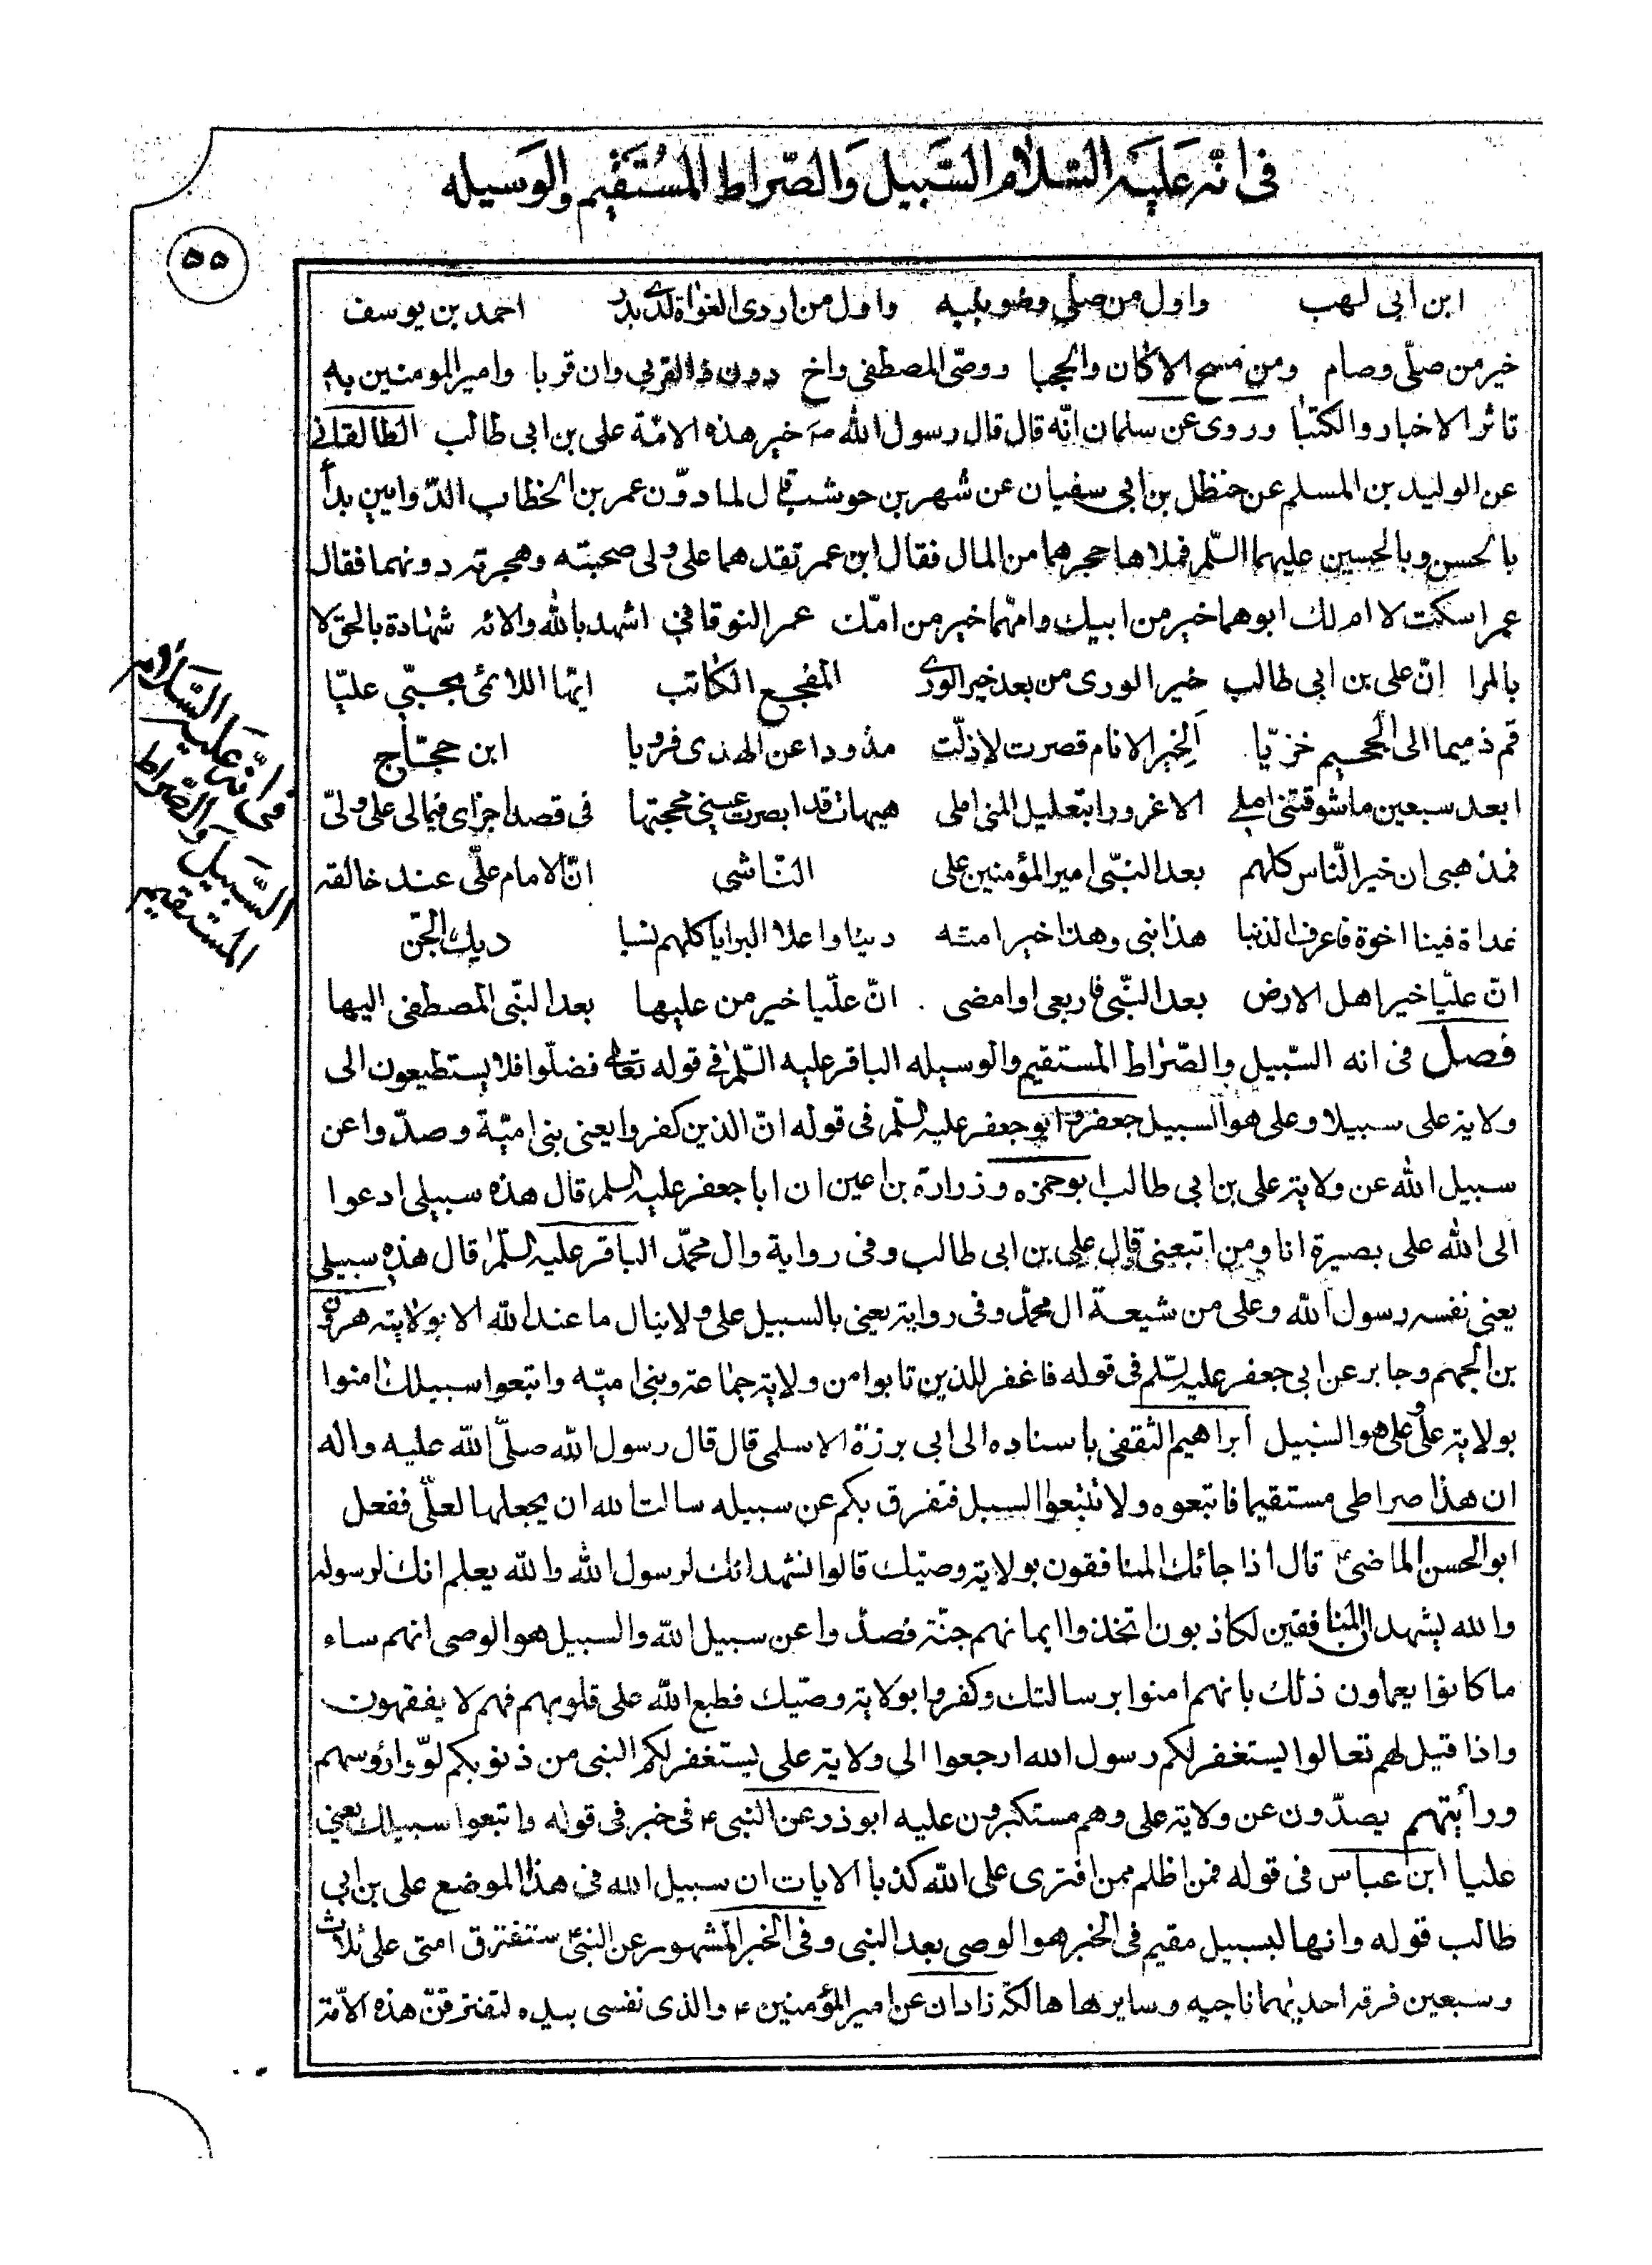 فى انّه عَليَه السّلام السَّبيل وَالصّراط المُسْتَقيم والوَسيله
٥٥
ابن ابى لهب واول من صلى وصنو نبيه واول من اردى الغواة لدى بدر احمد بن يوسف
خير من صلّى وصام ومن مسح الاركان والحجبا ووصى المصطفى واخ دون ذا القربى وان قربا وامير المومنين به
تاثر الاخبار والكتبا وروى عن سلمان انّه قال قال رسول الله ص خير هذه الامّة على بن ابى طالب الطالقانى
عن الوليد بن المسلم عن حنظل بن ابى سفيان عن شهر بن حوشب قال لما دوّن عمر بن الخطاب الدّواوين بدأ
بالحسن وبالحسين عليهما السّلم فملاها حجرهما من المال فقال ابن عمر تقدهما على ولى صحبته وهجرته دونهما فقال
عمر اسكت لا ام لك ابوهما خير من ابيك وامّهما خير من امّك عمر النوقانى اشهد بالله والائه شهادة بالحق لا
بالمرا انّ على بن ابى طالب خير الورى من بعد خير الورى المفجع الكاتب ايّها اللائمى بحبّى عليّا
قم ذميما الى الجحيم خزيّا. اَلِخير الانام قصرت لازلت مذودا عن الهدى فرويا ابن حجّاج
ابعد سبعين ما شوقتنى املى الا غرورا بتعليل المنى املى هيهات قد ابصرت عينى محجتها فى قصد اجزاى فمالى على ولىّ
فمذهبى ان خير النّاس كلهم بعد النبّى امير المؤمنين على النّاشى انّ الامام علىّ عند خالقه
غداة فينا اخوة فاعرف الذنبا هذا نبى وهذا خير امته دينا واعلا البرايا كلهم نسبا ديك الجنّ
انّ عليّا خير اهل الارض بعد النبّى فاربعى او امضى . انّ عليّا خير من عليها بعد النبّى المصطفى اليها
فصل فى انه السّبيل والصّراط المستقيم والوسيله الباقر عليه السّلم فى قوله تعالى فضلّوا فلا يستطيعون الى
ولاية على سبيلا وعلى هو السبيل جعفر وابو جعفر عليه السّلم فى قوله انّ الذين كفروا يعنى بنى اميّة وصدّوا عن
سبيل الله عن ولاية على بن ابى طالب ابو حمزه وزرارة بن اعين ان ابا جعفر عليه السلم قال هذه سبيلى ادعوا
الى الله على بصيرة انا ومن اتبعنى قال على بن ابى طالب وفى رواية وال محمّد الباقر عليه السّلم قال هذه سبيلى
يعنى نفسه رسول الله وعلى من شيعة ال محمّد وفى رواية يعنى بالسبيل على ولا ينال ما عند الله الا بولايته هرون
بن الجهم وجابر عن ابى جعفر عليه السّلم فى قوله فاغفر للذين تابوا من ولاية جماعة وبنى اميّه واتبعوا سبيلك امنوا
بولاية علىّ وعلى هو السّبيل ابراهيم الثقفى باسناده الى ابى برزة الاسلمى قال قال رسول الله صلّى الله عليه واله
ان هذا صراطى مستقيما فاتبعوه ولا تتبعوا السبل فتفرق بكم عن سبيله سالت الله ان يجعلها لعلىّ ففعل
ابو الحسن الماضىؑ قال اذا جائك المنافقون بولاية وصيّك قالوا نشهد انك لرسول الله والله يعلم انك لرسوله
والله يشهد ان المنافقين لكاذبون اتخذوا ايمانهم جنّة فصدّوا عن سبيل الله والسبيل هو الوصى انهم ساء
ما كانوا يعملون ذلك بانهم امنوا برسالتك وكفروا بولاية وصيّك فطبع الله على قلوبهم فهم لا يفقهون
واذا قيل لهم تعالوا يستغفر لكم رسول الله ارجعوا الى ولاية على يستغفر لكم النبى من ذنوبكم لوّوا رؤسهم
ورأيتهم يصدّون عن ولاية على وهم مستكبرون عليه ابو ذر عن النبى ع فى خبر فى قوله واتبعوا سبيلك يعنى
عليا ابن عباس فى قوله فمن اظلم ممن افترى على الله كذبا الايات ان سبيل الله فى هذا الموضع على بن ابى
طالب قوله وانها لبسبيل مقيم فى الخبر هو الوصى بعد النبى وفى الخبر المشهور عن النبىؑ ستفترق امتى على ثلاث
وسبعين فرقة احديهما ناجيه وسايرها هالكة زادان عن امير المؤمنين ع والذى نفسى بيده لتفترقنّ هذه الامّة
فى انّه عليه السَّلام
السَّبيل وَالصّراط
المستقيم